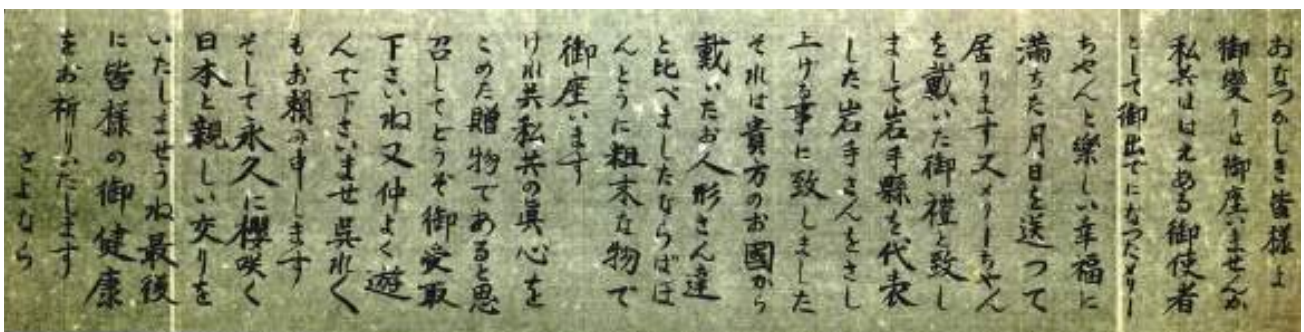 おなつかしき皆様よ
御變りは御座いませんか
私共ははえある御使者
として御出でになつたメリー
ちやんと樂しい幸福に
満ちた月日を送つて
居ります又メリーちやん
を戴いた御禮と致し
まして岩手縣を代表
した岩手さんをさし
上げる事に致しました
それは貴方のお國から
戴いたお人形さん達
と比べましたならばほ
んとうに粗末な物で
御座います
けれ共私共の眞心を
このた贈物であると思
召してどうぞ御受取
下さいね又仲よく遊
んで下さいませ呉れ〱
もお頼み申します
そして永久に櫻咲く
日本と親しい交りを
いたしませうね最後
に皆様の御健康
をお祈りいたします
さよなら